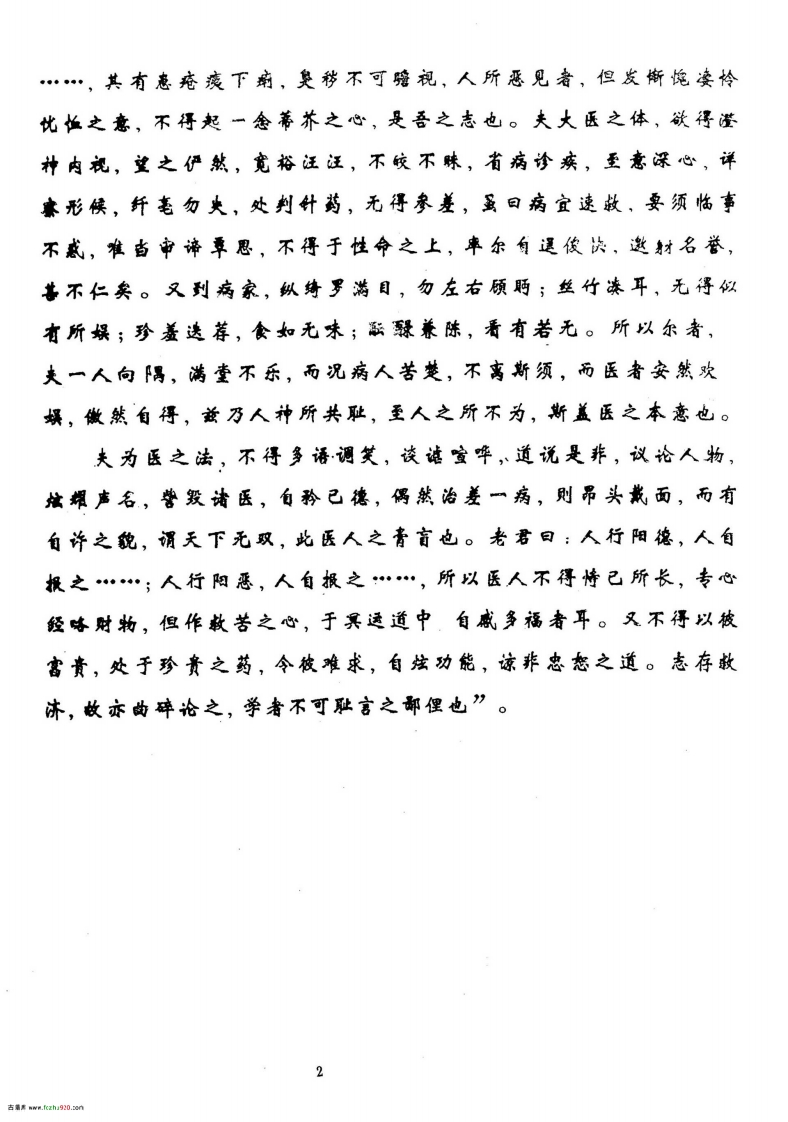 ……，其有患疮痍下痢，臭秽不可瞻视，人所恶见者，但发惭愧凄怜
忧恤之意，不得起一念蒂芥之心，是吾之志也。夫大医之体，欲得澄
神内视，望之俨然，宽裕汪汪，不皎不昧，省病诊疾，至意深心，详
察形候，纤毫勿失，处判针药，无得参差，虽曰病宜速救，要须临事
不惑，唯当审谛覃思，不得于性命之上，率尔自逞俊快，邀射名誉，
甚不仁矣。又到病家，纵绮罗满目，勿左右顾眄；丝竹凑耳，无得似
有所娱；珍羞迭荐，食如无味；醽醁兼陈，看有若无。所以尔者，
夫一人向隅，满堂不乐，而况病人苦楚，不离斯须，而医者安然欢
娱，傲然自得，兹乃人神所共耻，至人之所不为，斯盖医之本意也。
夫为医之法，不得多语调笑，谈谑喧哗，道说是非，议论人物，
炫耀声名，訾毁诸医，自矜已德，偶然治差一病，则昂头戴面，而有
自许之貌，谓天下无双，此医人之膏肓也。老君曰：人行阳德，人自
报之……；人行阳恶，人自报之……，所以医人不得恃已所长，专心
经略财物，但作救苦之心，于冥运道中 自感多福者耳。又不得以彼
富贵，处于珍贵之药，令彼难求，自炫功能，谅非忠恕之道。志存救
济，故亦曲碎论之，学者不可耻言之鄙俚也”。
2
www.fozhu920.com